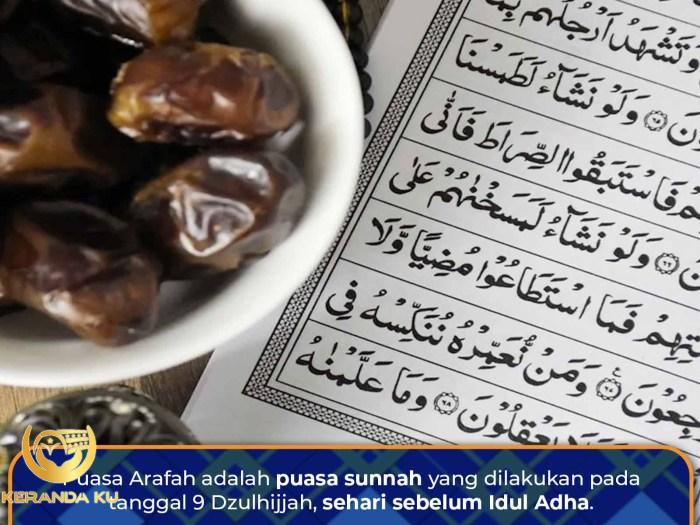 وَتَشْهَدُ اَرْجُلُهُمْ بِمَا
وَلَوْ نَشَآءُ لَطَمَسْنَا
فَاسْتَبَقُوا الصِّرَاطَ فَاَنّٰى
وَلَوْ نَشَآءُ لَمَسَخْنٰهُمْ عَلٰى
فَمَا اسْتَطَاعُوْا مُضِيًّا وَّلَا
وَمَنْ نُّعَمِّرْهُ نُنَكِّسْهُ فِى
يَعْقِلُوْنَ ۝٦٨ وَمَا عَلَّمْنٰهُ
Puasa Arafah adalah puasa sunnah yang dilakukan pada
tanggal 9 Dzulhijjah, sehari sebelum Idul Adha.
KERANDA KU